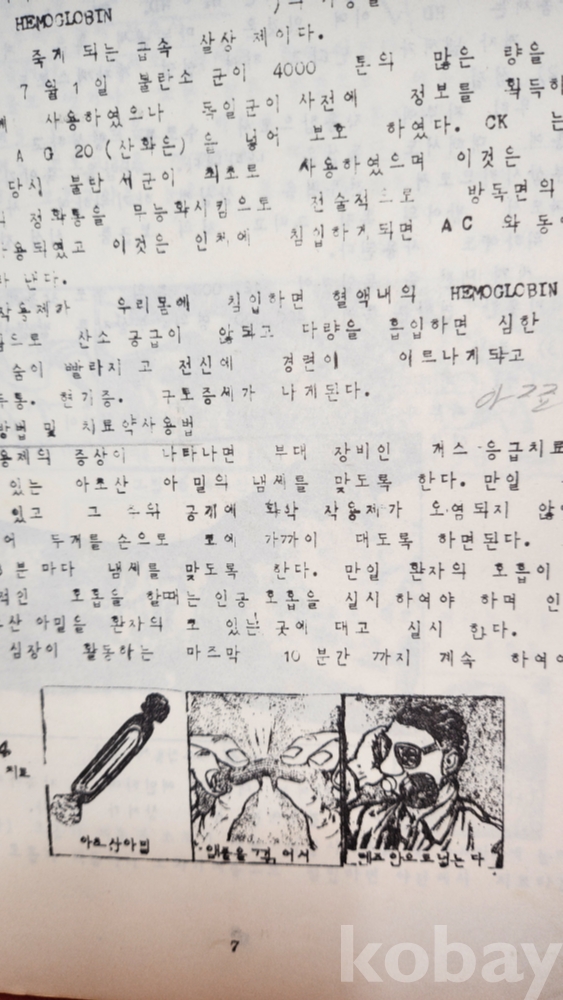 HEMOGLOBIN
죽게 되는 급속 살상 제이다.
7 월 1 일 불란소 군이 4000 톤의 많은 량을
사용하였으나 독일군이 사전에 정보를 획득하
A G 20 (산화은) 을 넣어 보호 하였다. CK 는
당시 불란 서군이 최초로 사용하였으며 이것은
정화통을 무능화시킴으로 전술적으로 방독면의
이것은 인체에 침입하게되면 AC 와 동
난다.
작용제가 우리몸에 침입하면 혈액내의 HEMOGLOBIN
으로 산소 공급이 않되고 다량을 흡입하면 심한
숨이 빨라지 고 전신에 경련이 이르나게 되고
두통. 현기증. 구토증세가 나게된다.
방법 및 치료약사용법
용제의 증상이 나타나면 부대 장비인 개스 응급치료
있는 아초산 아 밀의 냄쌔를 맞도록 한다. 만일
있고 그 주위 공기에 화학 작용제가 오염되지 않
어 두개를 손으로 코에 가까이 대도록 하면된다.
분 마다 냄쌔를 맞도록 한다. 만일 환자의 호흡이
호흡을 할때는 인공 호흡을 실시 하여야 하며 인
산 아밀을 환자의 코 있는 곳에 대고 실시 한다.
심장이 활동하는 마즈막 10 분간 까지 계속 하여야
4.
치료
아초산아밀
앰플을 꺽어서
렌즈안으로넣는다
7
kobay